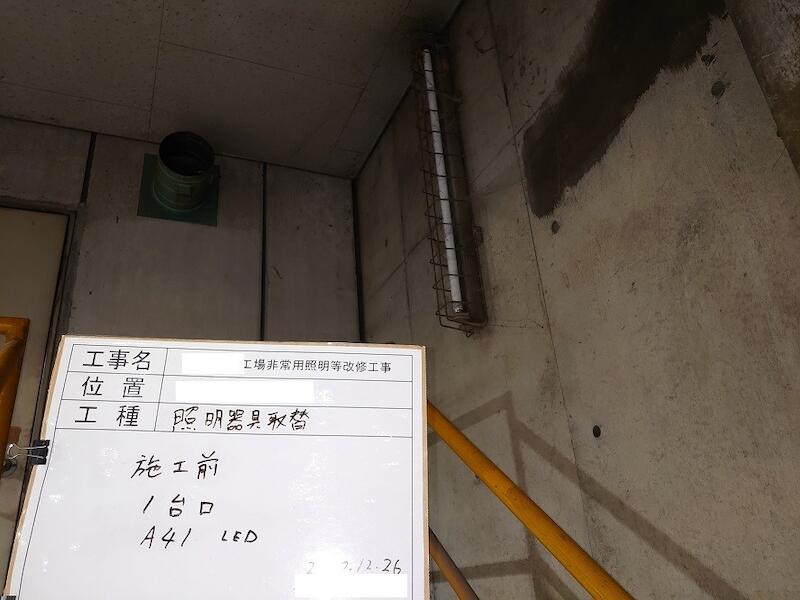 工事名 工場非常用照明等改修工事
位置
工種 照明器具取替
施工前
1台口
A41 LED
12.26